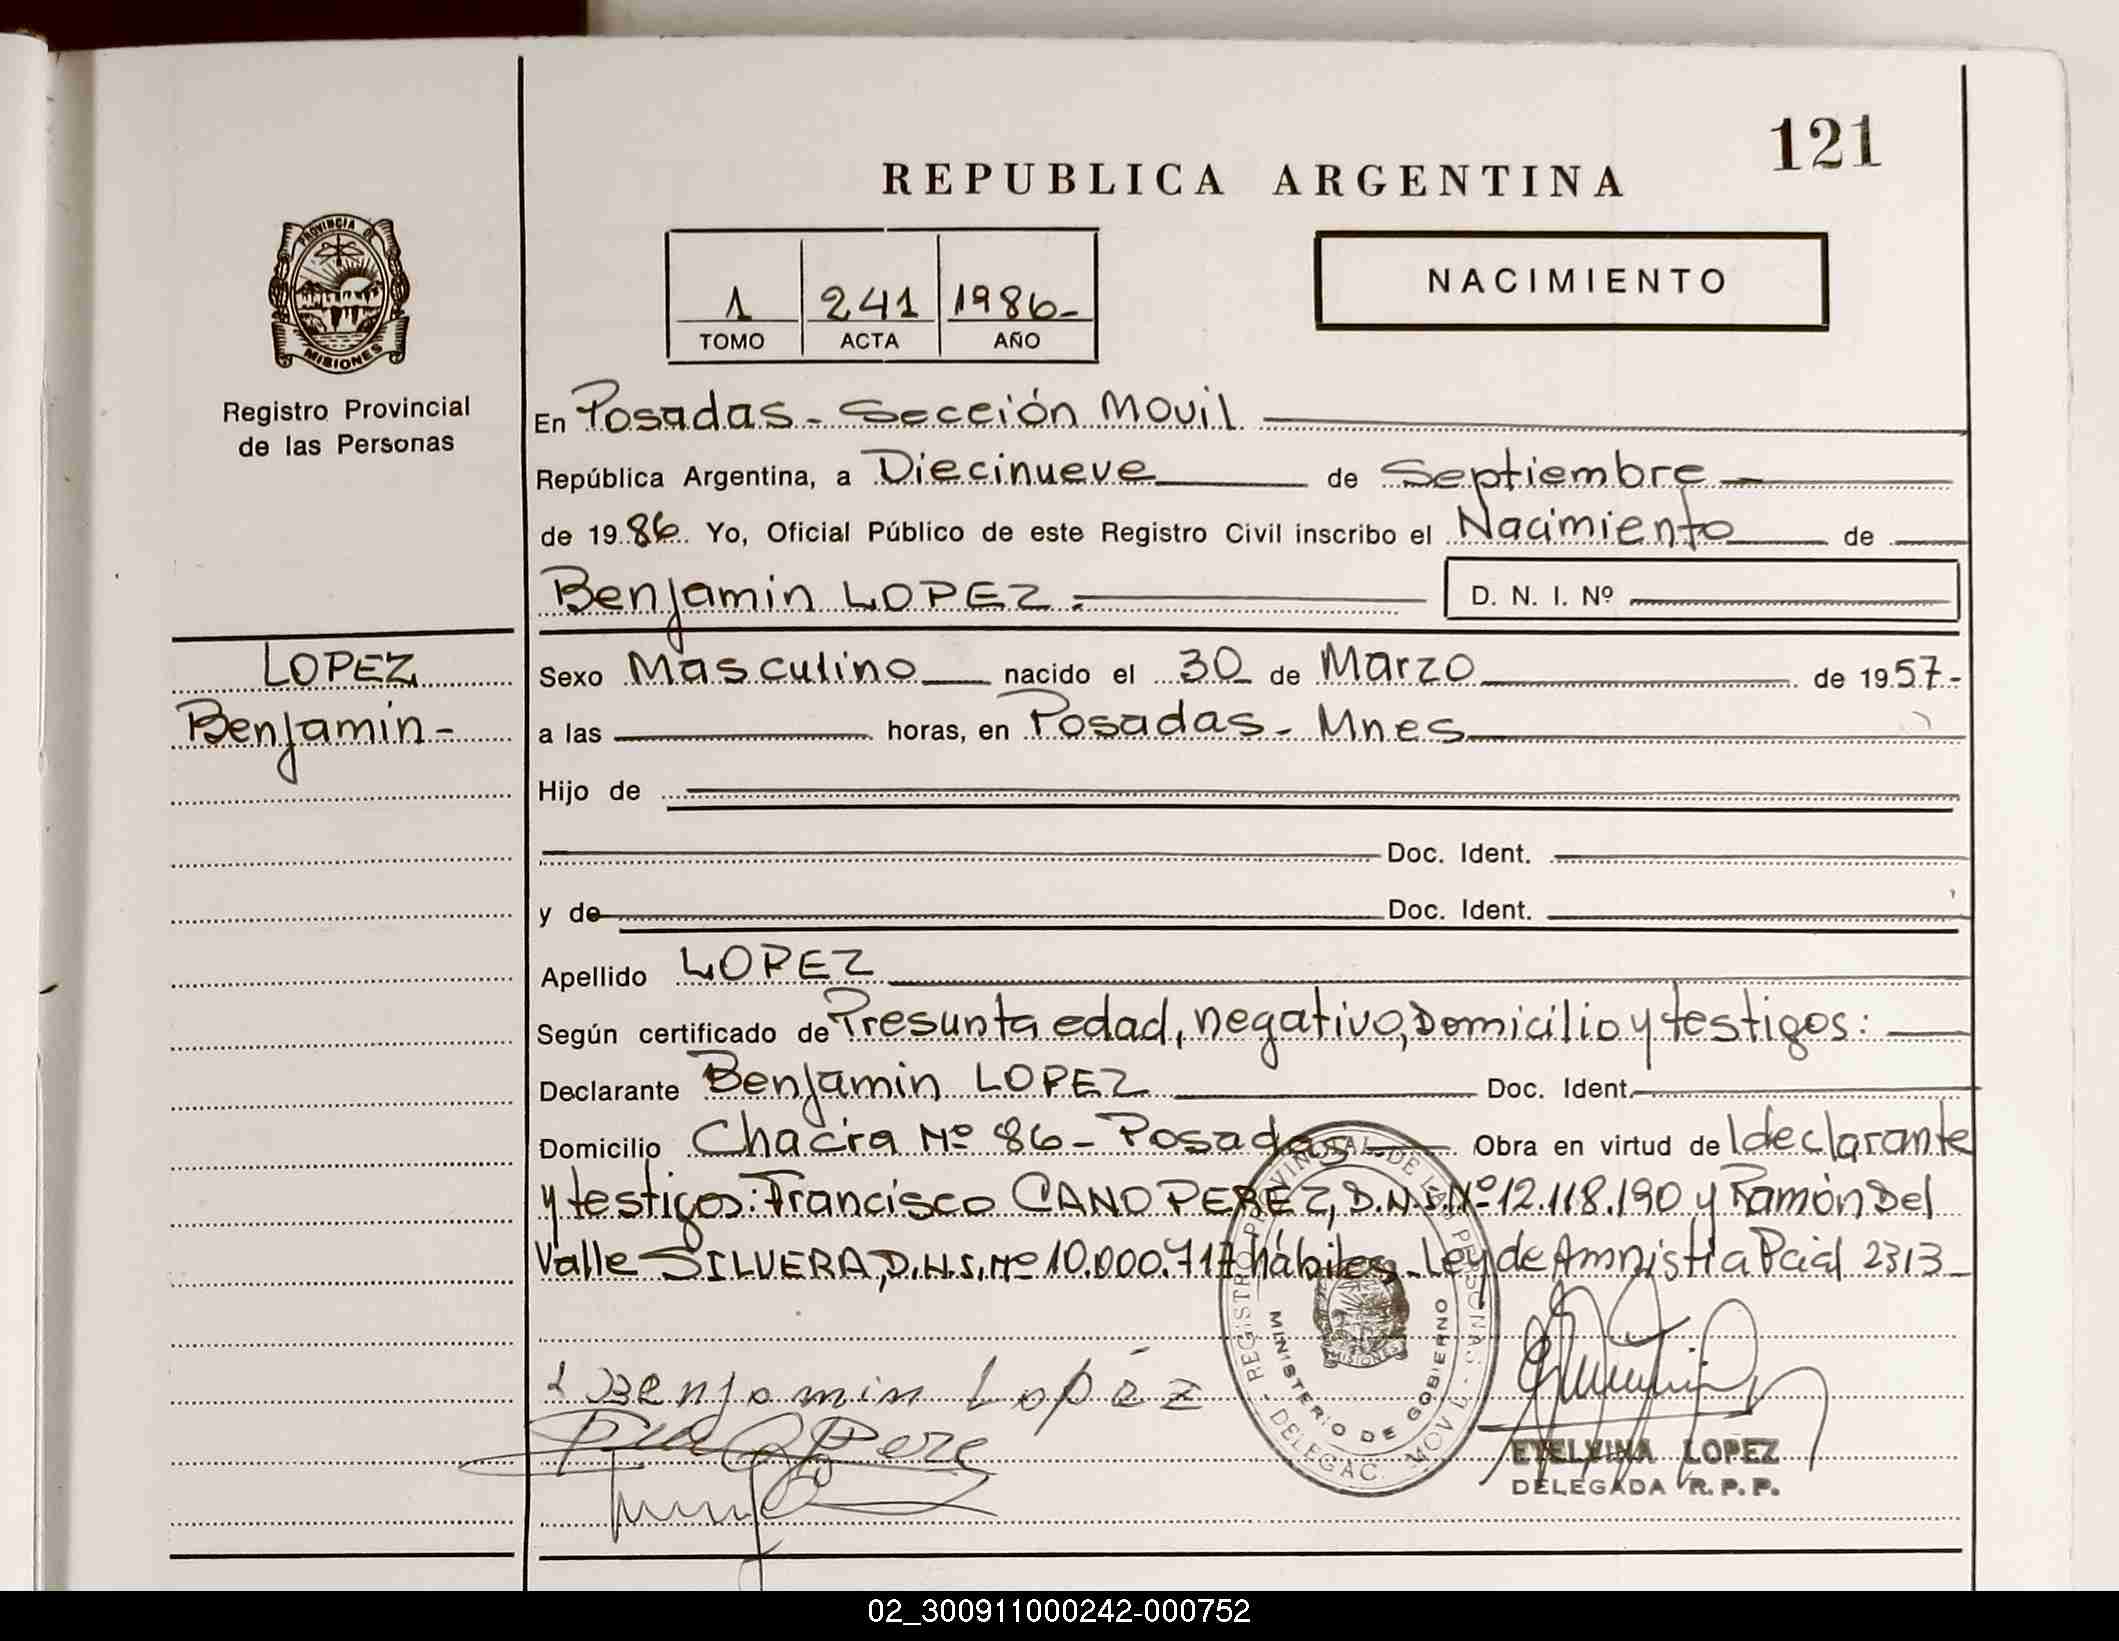 121
REPUBLICA ARGENTINA
PROVINCIA DE
MISIONES
Registro Provincial
de las Personas
1 241 1986-
TOMO ACTA AÑO
NACIMIENTO
En Posadas - Sección Movil
República Argentina, a Diecinueve de Septiembre
de 1986. Yo, Oficial Público de este Registro Civil inscribo el Nacimiento de
Benjamin LOPEZ.
D. N. I. Nº
LOPEZ
Benjamin-
Sexo Masculino nacido el 30 de Marzo de 1957-
a las horas, en Posadas - Mnes
Hijo de
Doc. Ident.
y de Doc. Ident.
Apellido LOPEZ
Según certificado de Presunta edad, negativo, Domicilio y testigos:
Declarante Benjamin LOPEZ Doc. Ident.
Domicilio Chacra Nº 86 - Posadas Obra en virtud de l declarante
y testigos: Francisco CANO PEREZ, D.N.I. Nº 12.118.190 y Ramón Del
Valle SILVERA, D.N.I. Nº 10.000.717 hábiles - Ley de Amnistia Pcial 2313
Benjamin Lopéz
REGISTRO PROVINCIAL DE LAS PERSONAS
MINISTERIO DE GOBIERNO
MISIONES
DELEGAC. MOVIL
ETELVINA LOPEZ
DELEGADA R.P.P.
02_300911000242-000752